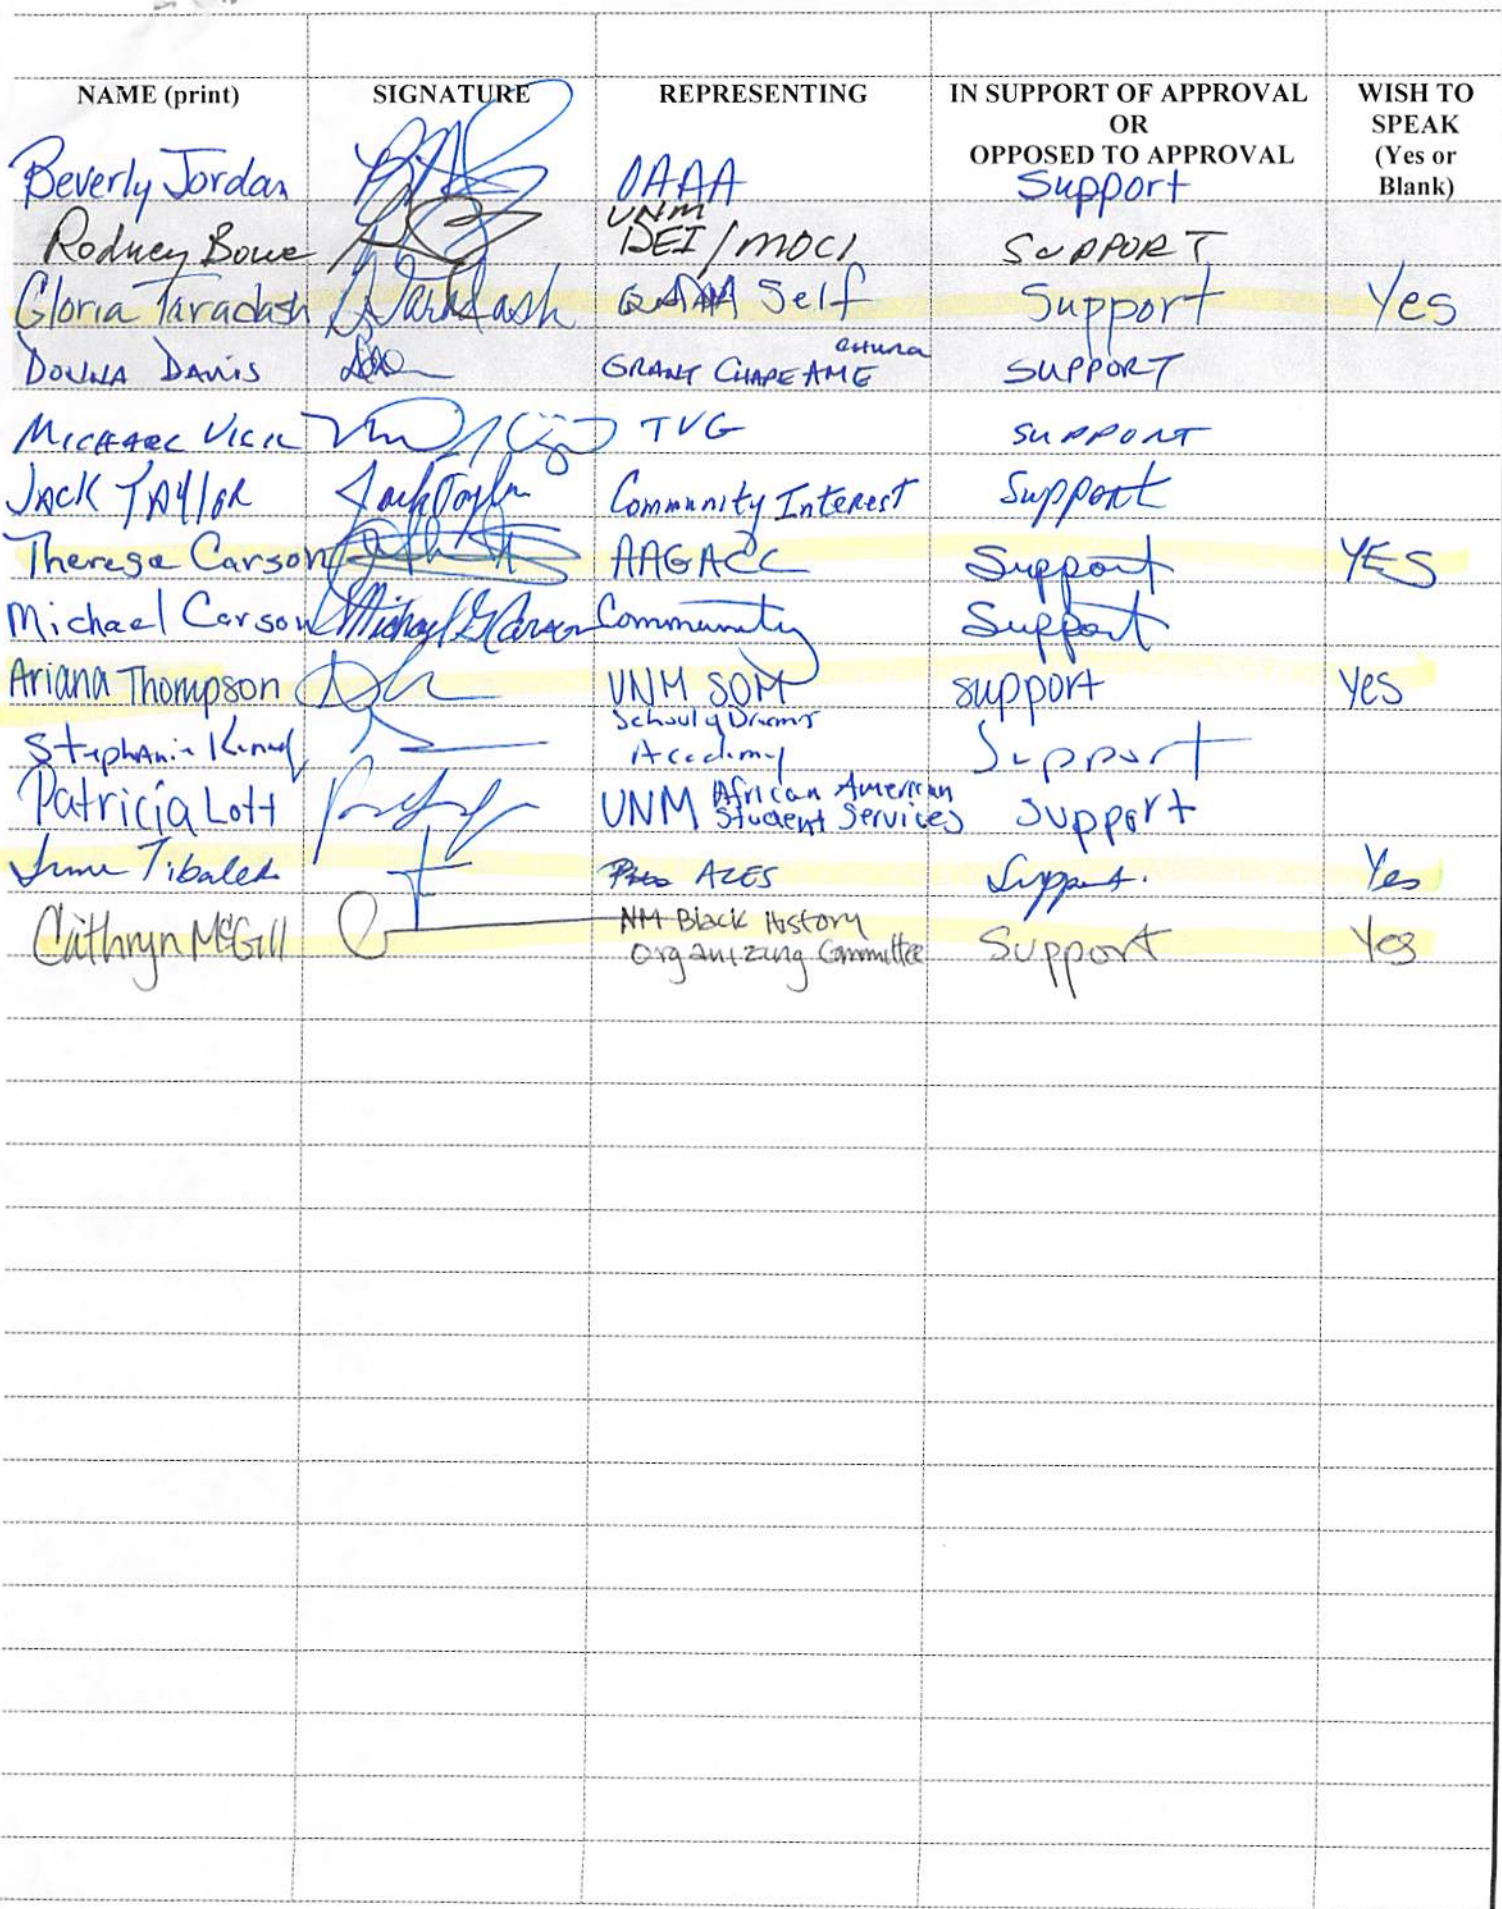 NAME (print) SIGNATURE REPRESENTING IN SUPPORT OF APPROVAL OR OPPOSED TO APPROVAL WISH TO SPEAK (Yes or Blank)
Beverly Jordan OAAA Support
Rodney Bowe UNM DEI/MOCI SUPPORT
Gloria Taradash G Taradash Self Support Yes
DONNA DAVIS GRANT CHAPE AME SUPPORT
MICHAEL VIGIL TVG SUPPORT
JACK TAYLOR Jack Taylor Community Interest Support
Theresa Carson AAGACC Support YES
Michael Carson Michael G Carson Community Support
Ariana Thompson UNM SOM support yes
Stephanie School of Dreams Academy Support
Patricia Lott UNM African American Student Services Support
AZES Support. Yes
Cathryn McGill NM Black History Organizing Committee Support Yes